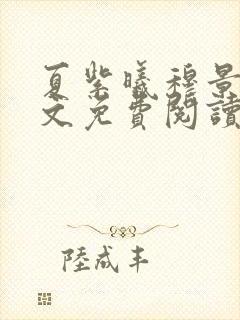 夏紫曦穆景
文免費閱讀
陸成丰